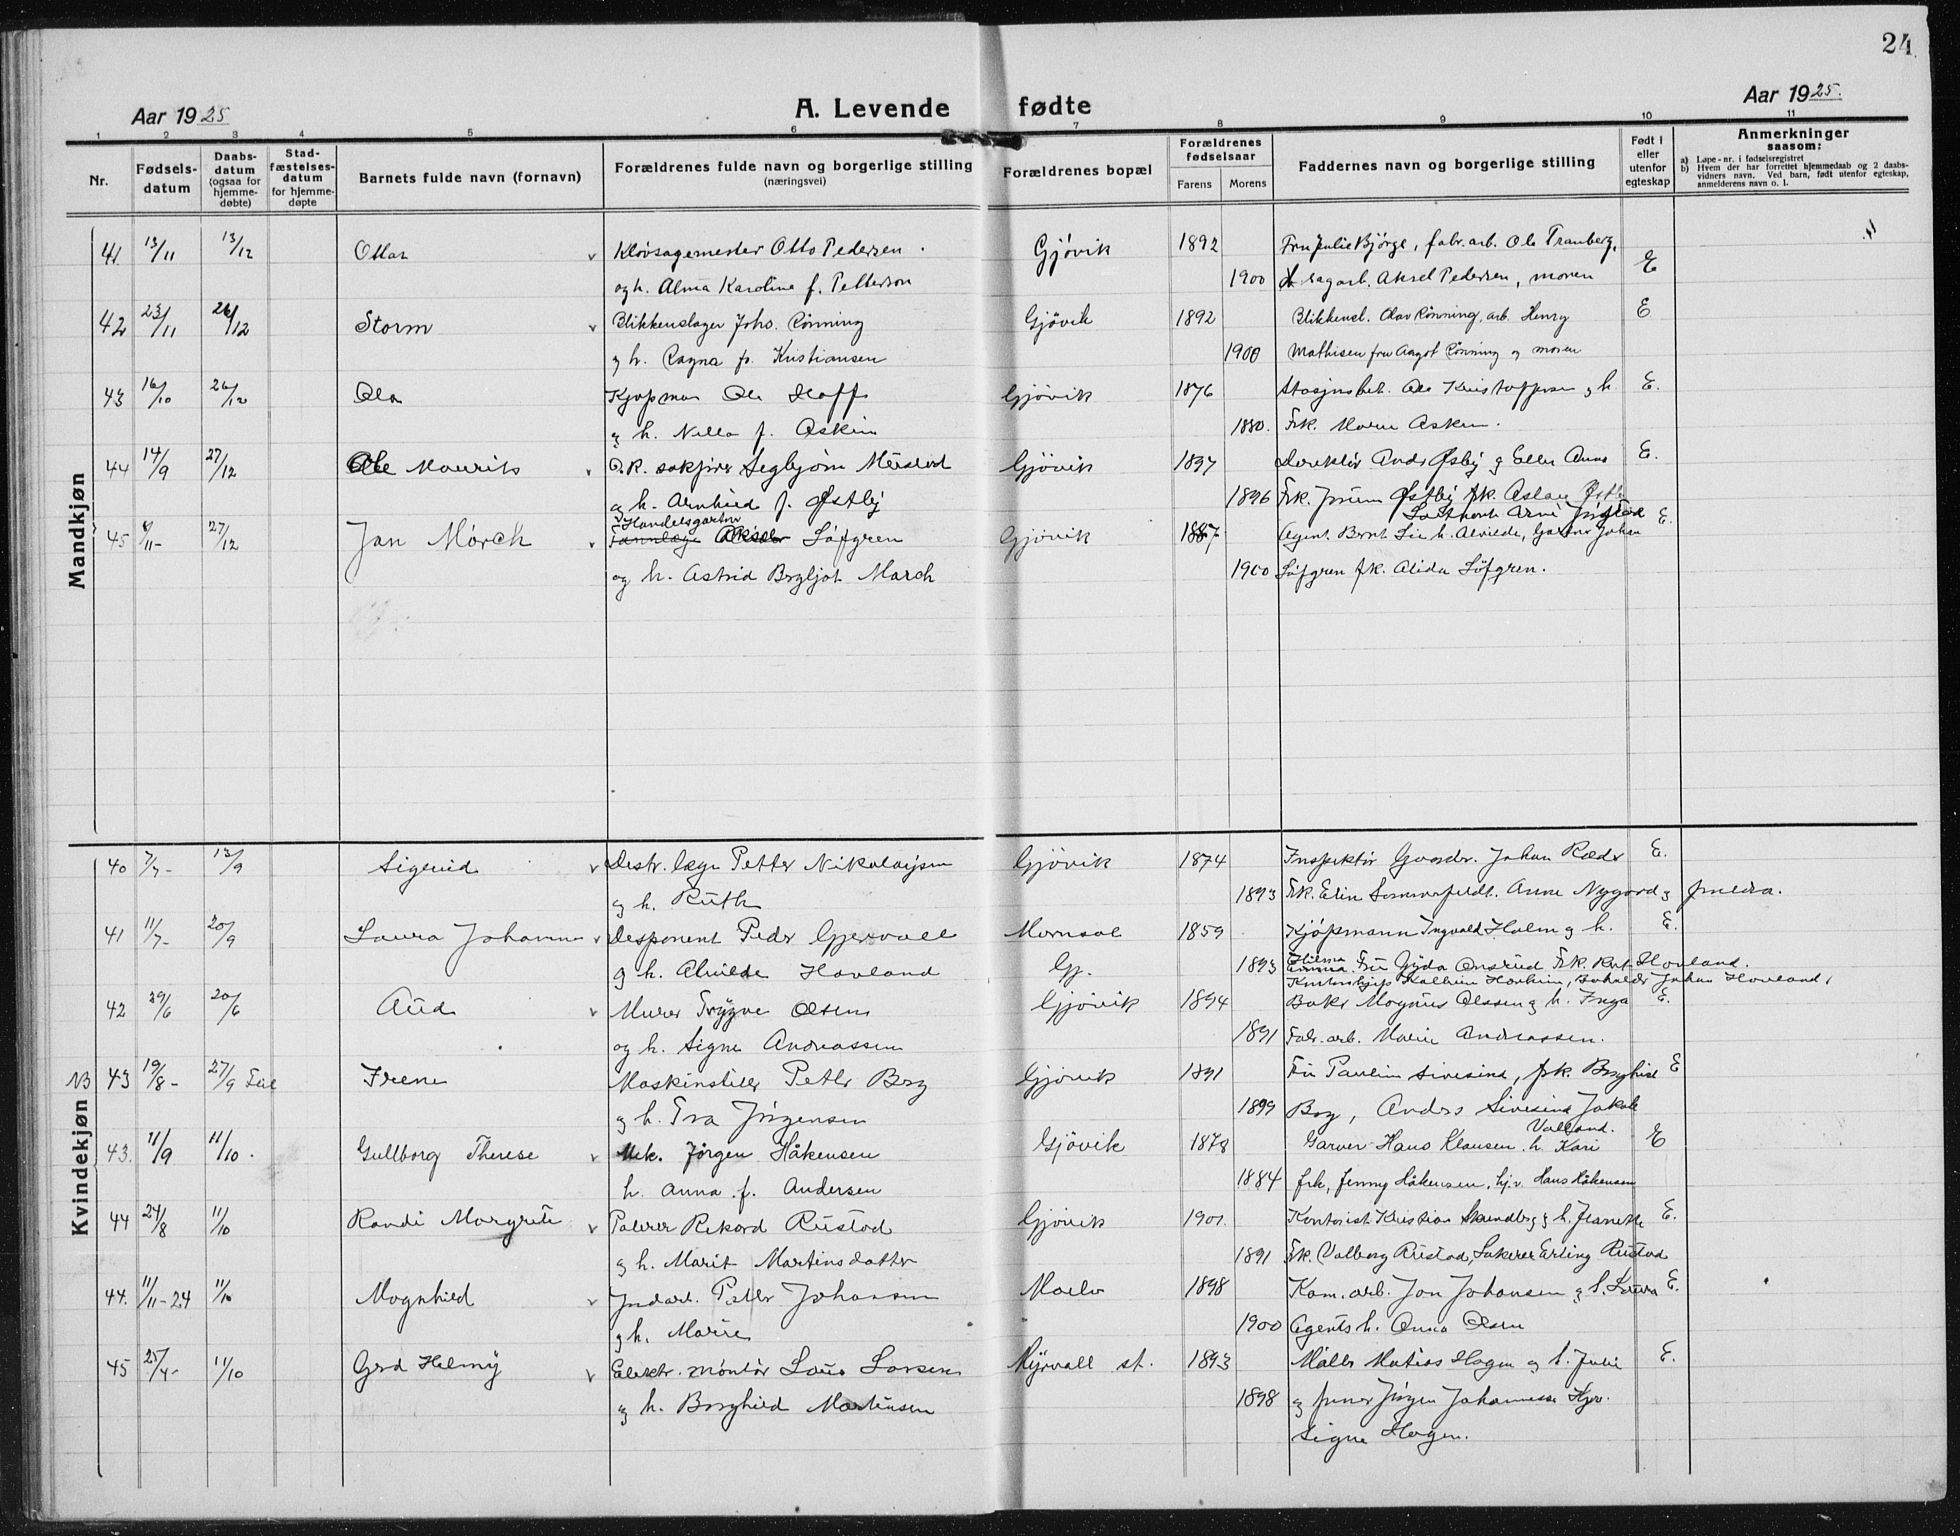 24
Aar 1925
A. Levende fødte
Aar 1925.
1 2 3 4 5 6 7 8 9 10 11
Nr.
Fødsels-
datum
Daabs-
datum
(ogsaa for
hjemme-
døbte)
Stad-
fæstelses-
datum
for hjemme-
døpte
Barnets fulde navn (fornavn)
Forældrenes fulde navn og borgerlige stilling
(næringsvei)
Forældrenes bopæl
Forældrenes
fødselsaar
Farens Morens
Faddernes navn og borgerlige stilling
Født i
eller
utenfor
egteskap
Anmerkninger
saasom:
a) Løpe-nr. i fødselsregistret
b) Hvem der har forrettet hjemmedaab og 2 daabs-
vidners navn. Ved barn, født utenfor egteskap,
anmelderens navn o. l.
Mandkjøn
41. 13/11 13/12 Ottar Kløvsagemester Otto Pedersen Gjøvik 1892 Fru Julie Bjørge, fabr.arb. Ole Tranberg,
og h. Alma Karoline f. Petterson 1900 sagarb. Aksel Pedersen, moren E
42 23/11 26/12 Storm Blikkenslager Johs. Rønning Gjøvik 1892 Blikkensl. Olav Rønning, arb. Henry E
og h. Ragna f. Kristiansen 1900 Mathisen fru Aagot Rønning og moren
43 16/10 26/12 Ola Kjøpman Ole Hoff Gjøvik 1876 Stasjonsbet. Ole Kristoffersen og h. E.
og h. Nella f. Askim 1880. Frk. Maren Askim.
44 14/9 27/12 Ole Mauritz O.R. sakfører Segbjørn Mærstad Gjövik 1897 Direktør Andr Østby og Ellen Anna E.
og h. Arnhild f. Østby 1896 Frk. Østby frk. Aslau
45 11- 27/12 Jan Mörch Handelsgartner
Tannlæge Aksel Löfgren Gjøvik 1887 Agent. Bernt Lie h. Alvilde, Gartner Johan E.
og h. Astrid Bergljot March 1900 Löfgren frk. Alida Löfgren.
Kvindekjøn
40 7/7- 13/9 Sigrid Distr. læge Petter Nikolaisen Gjövik 1874 Inspektör Johan Ræder E.
og h. Ruth 1893 Frk. Elin Sommerfeldt. Anne Nygard og foreldra.
41 11/7- 20/9 Laura Johanne Disponent Peder Gjervall 1859 Kjöpmann Ingvald Holm og h. E.
og h. Alvilde Hovland Gj. 1893 Hilma Fru Gyda Onsrud Frk. Hovland.
Johan Hovland,
42 29/6 20/6 Aud Murer Trygve Olsen Gjövik 1894 Baker Magnus Olssen og h. Inga E.
og h. Signe Andreassen 1891 Fabr. arb. Marie Andreassen.
NB 43 19/8- 27/9 Feil Irene Maskinstiller Petter Berg Gjövik 1891 Fru Paulin Sivesind, frk. Borghild E
og h. Eva Jörgensen 1899 Berg, Anders Sivesind Jakob
Valland.
43. 11/9 11/10. Gullborg Therese Mek. Jörgen Håkensen Gjövik 1878 Garver Hans Klausen. h. Kari E
h. Anna f. Andersen 1884 frk, Jenny Håkensen, hj.v. Hans Håkensen
44 24/8 11/10 Randi Margrete Polerer Rikard Rustad Gjövik 1901. Kontorist Kristian Strandberg og h. Jeanette E.
og h. Marit Martinsdatter 1891 Frk. Valborg Rustad, Erling Rustad
44. 11/11-24 11/10 Magnhild Indarb. Petter Johansen Moelv 1898 Kom. arb. Jon Johansen og h. Laura E.
og h. Marie 1900 Agents h. Anna Olsen
45 25/4- 11/10 Gerd Helmy Elektr. montör Laus Larsen st. 1893 Möller Matias Hagen og h. Julie E.
og h. Borghild Martinsen 1898 og Jörgen Johannessen
Signe Hagen.